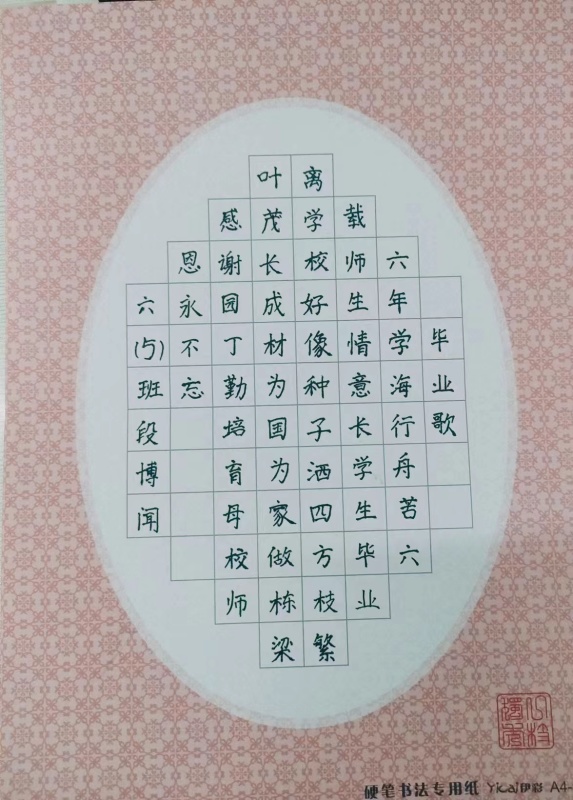 毕业歌
六年学海行舟苦六
载师生情意长学生毕业
离学校好像种子洒四方枝繁
叶茂长成材为国为家做栋梁
感谢园丁勤培育母校师
恩永不忘
六(5)班段博闻
硬笔书法专用纸 Yicai伊彩 A4-